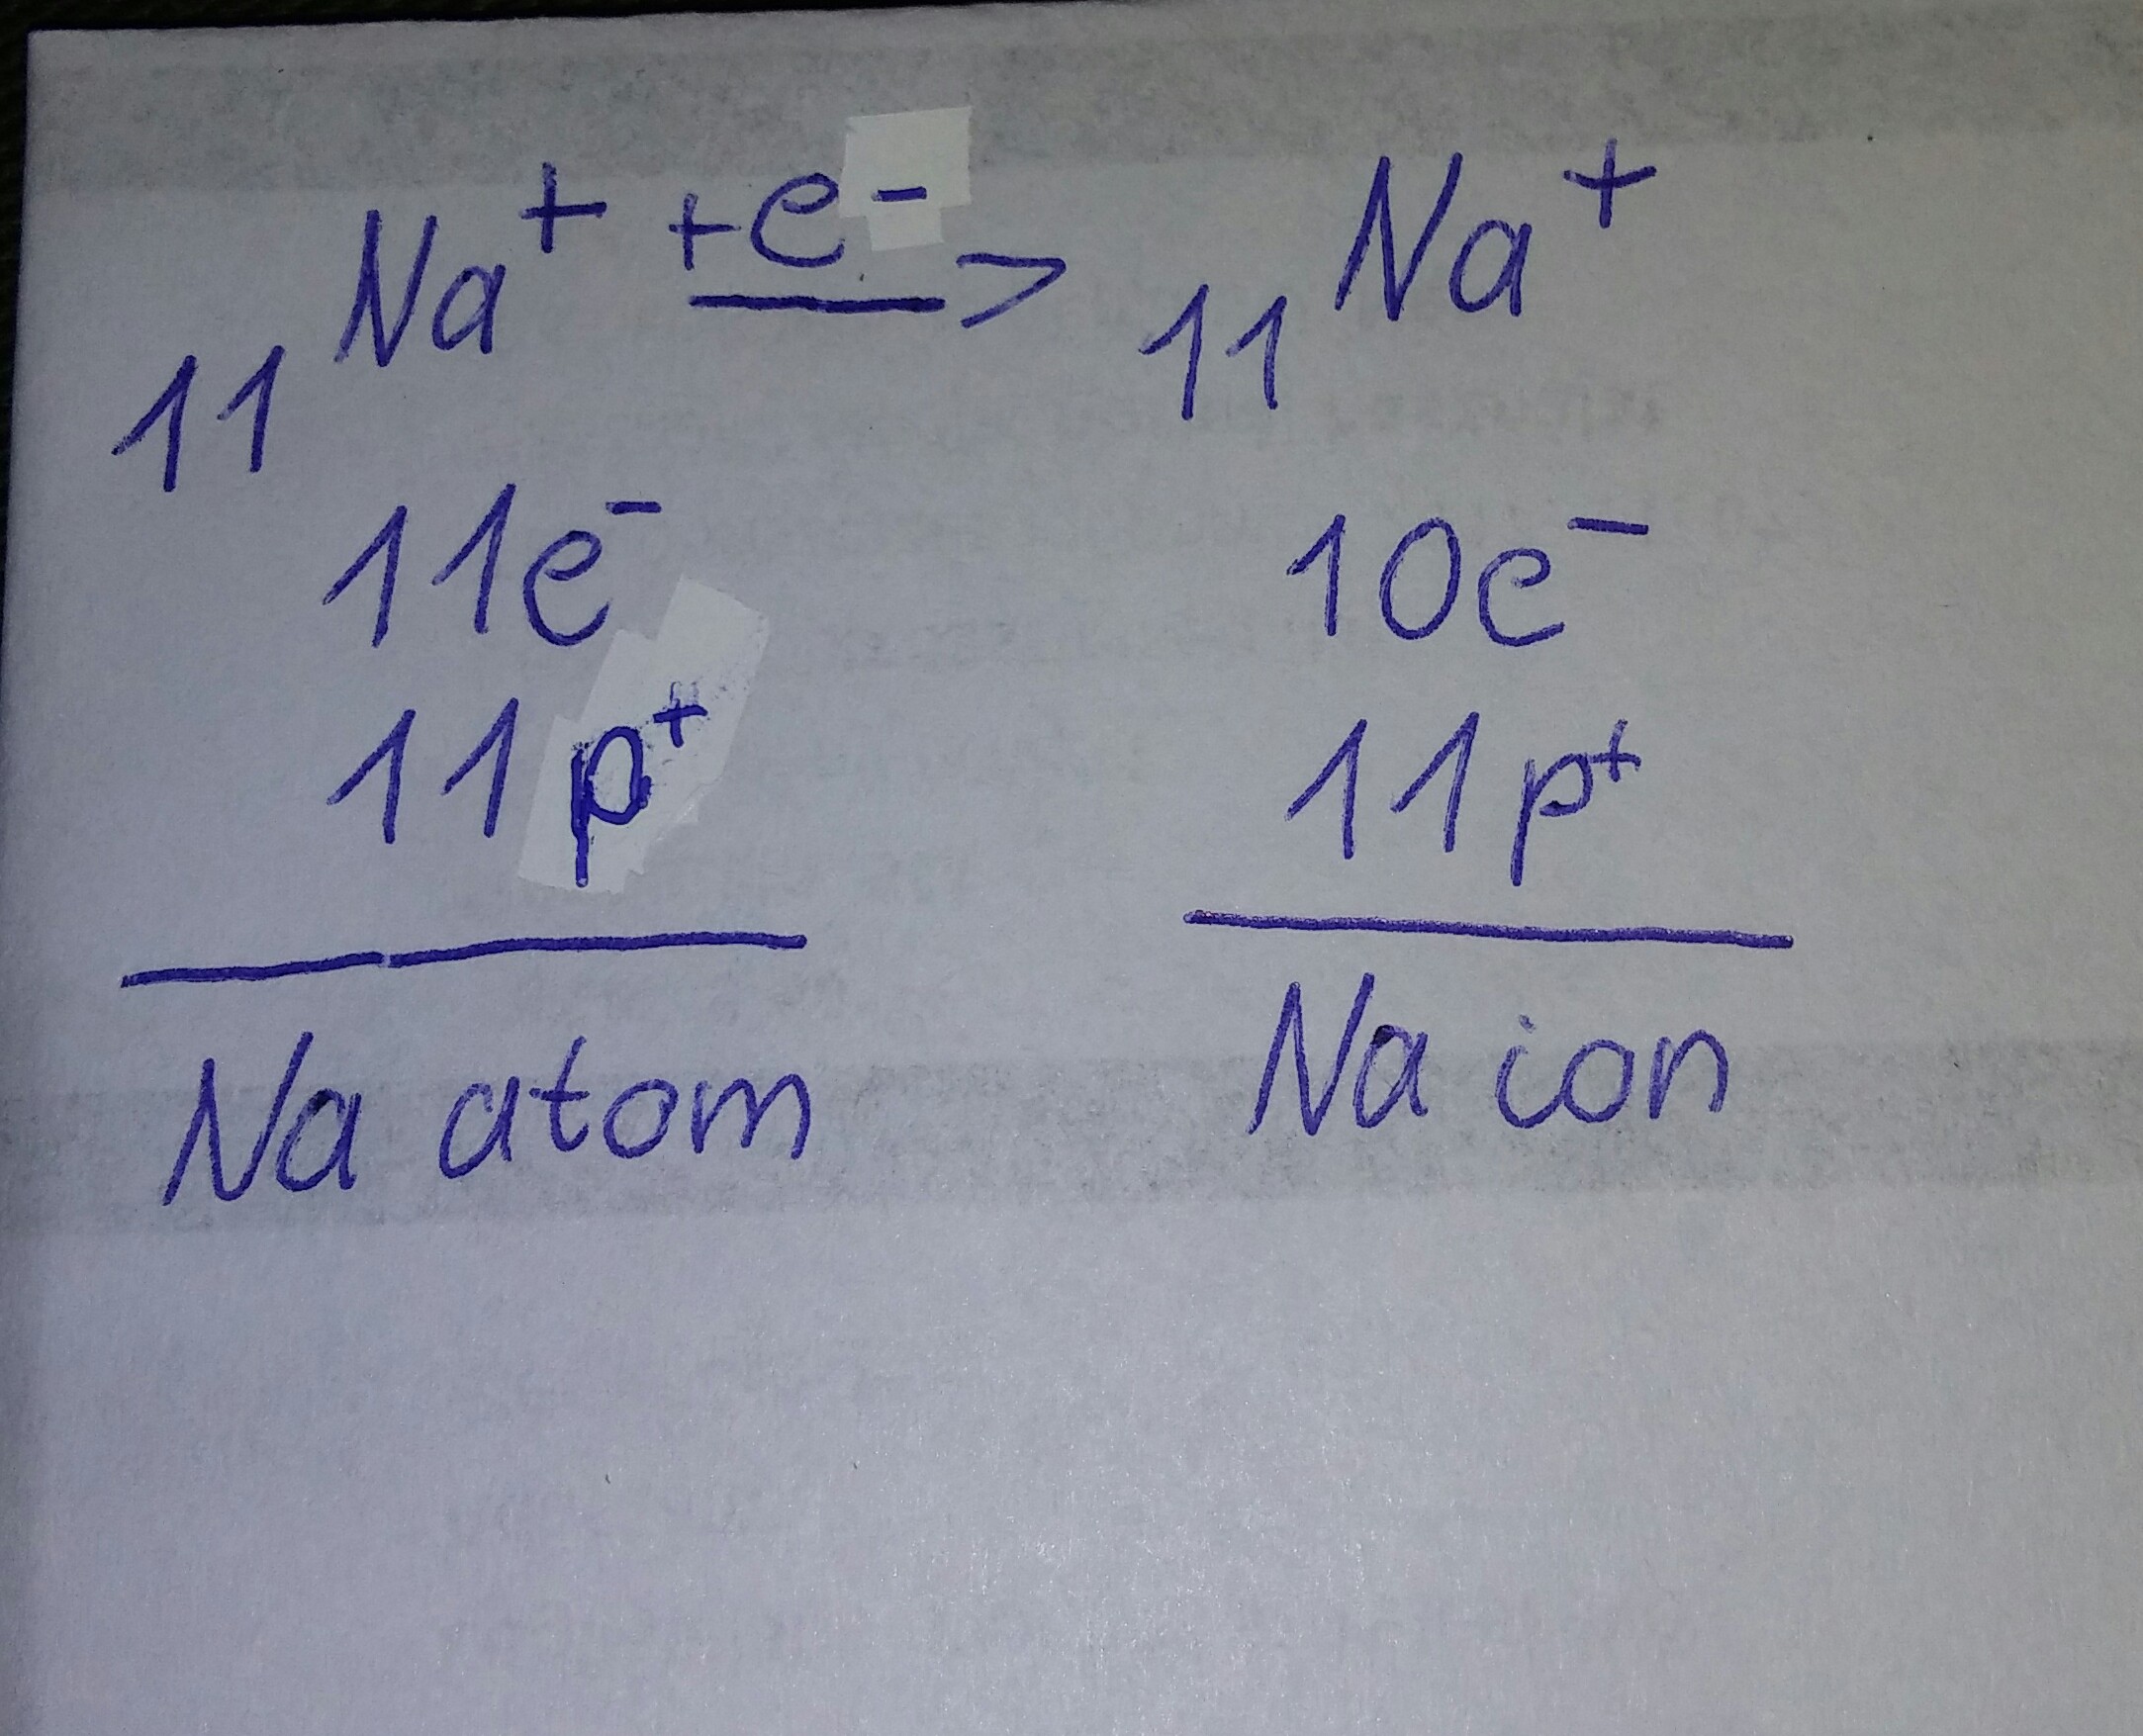 11Na+ +e- -> 11Na+
11e- 10e-
11p+ 11p+
Na atom Na ion